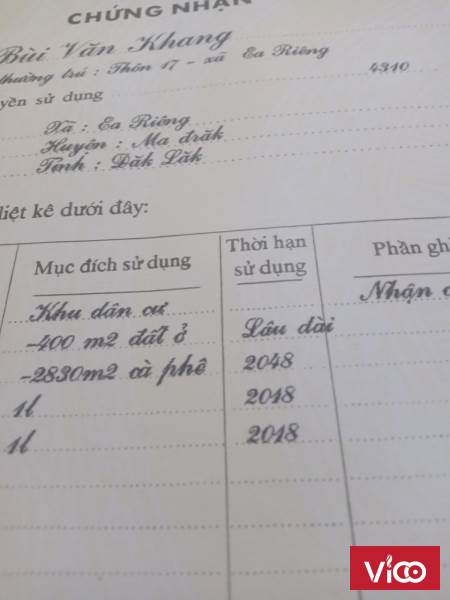 CHỨNG NHẬN
Bùi Văn Khang
thường trú : Thôn 17 - xã Ea Riêng
yền sử dụng 4310
Xã : Ea Riêng
Huyện : Ma đrăk
Tỉnh : Đăk Lăk
liệt kê dưới đây:
Mục đích sử dụng
Thời hạn
sử dụng
Phần gh
Khu dân cư
Nhận
-400 m2 đất ở Lâu dài
-2830m2 cà phê 2048
1l 2018
1l 2018
VICO